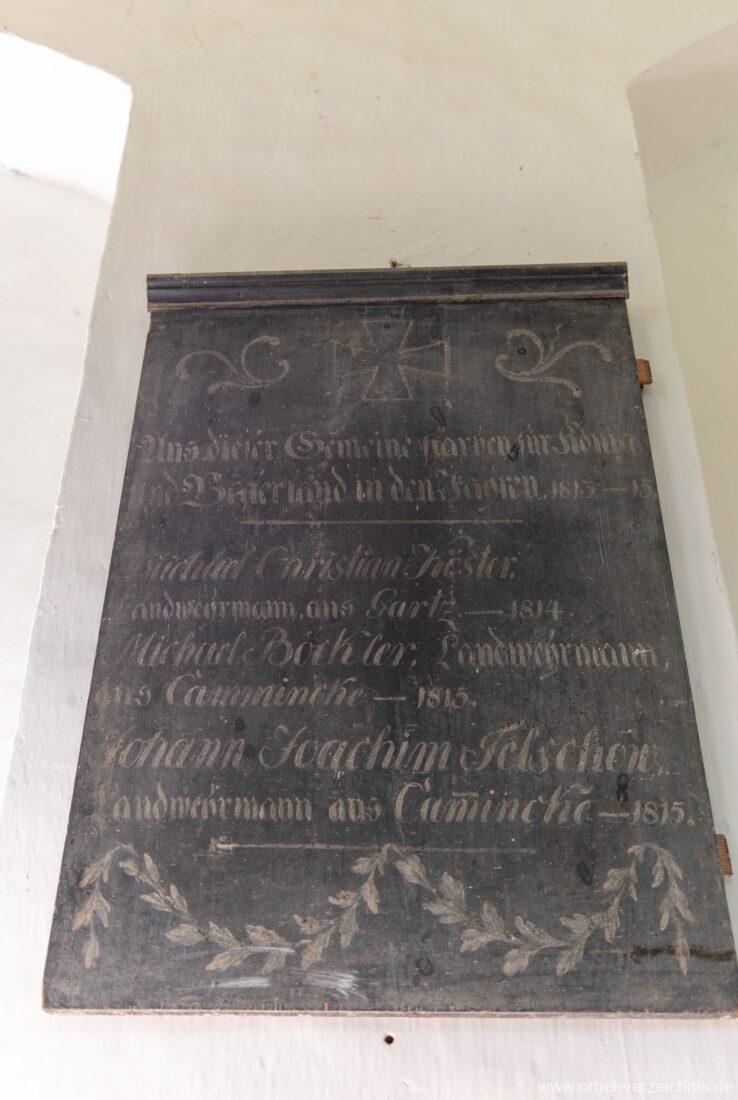 Aus dieser Gemeine starben für König
und Vaterland in den Jahren 1813–15.
Michael Christian Köster,
Landwehrmann, aus Gartz. — 1814.
Michael Böckler, Landwehrmann,
aus Cammincke — 1815.
Johann Joachim Telschow,
Landwehrmann aus Cam̄incke — 1815.
www.orgel-verzeichnis.de